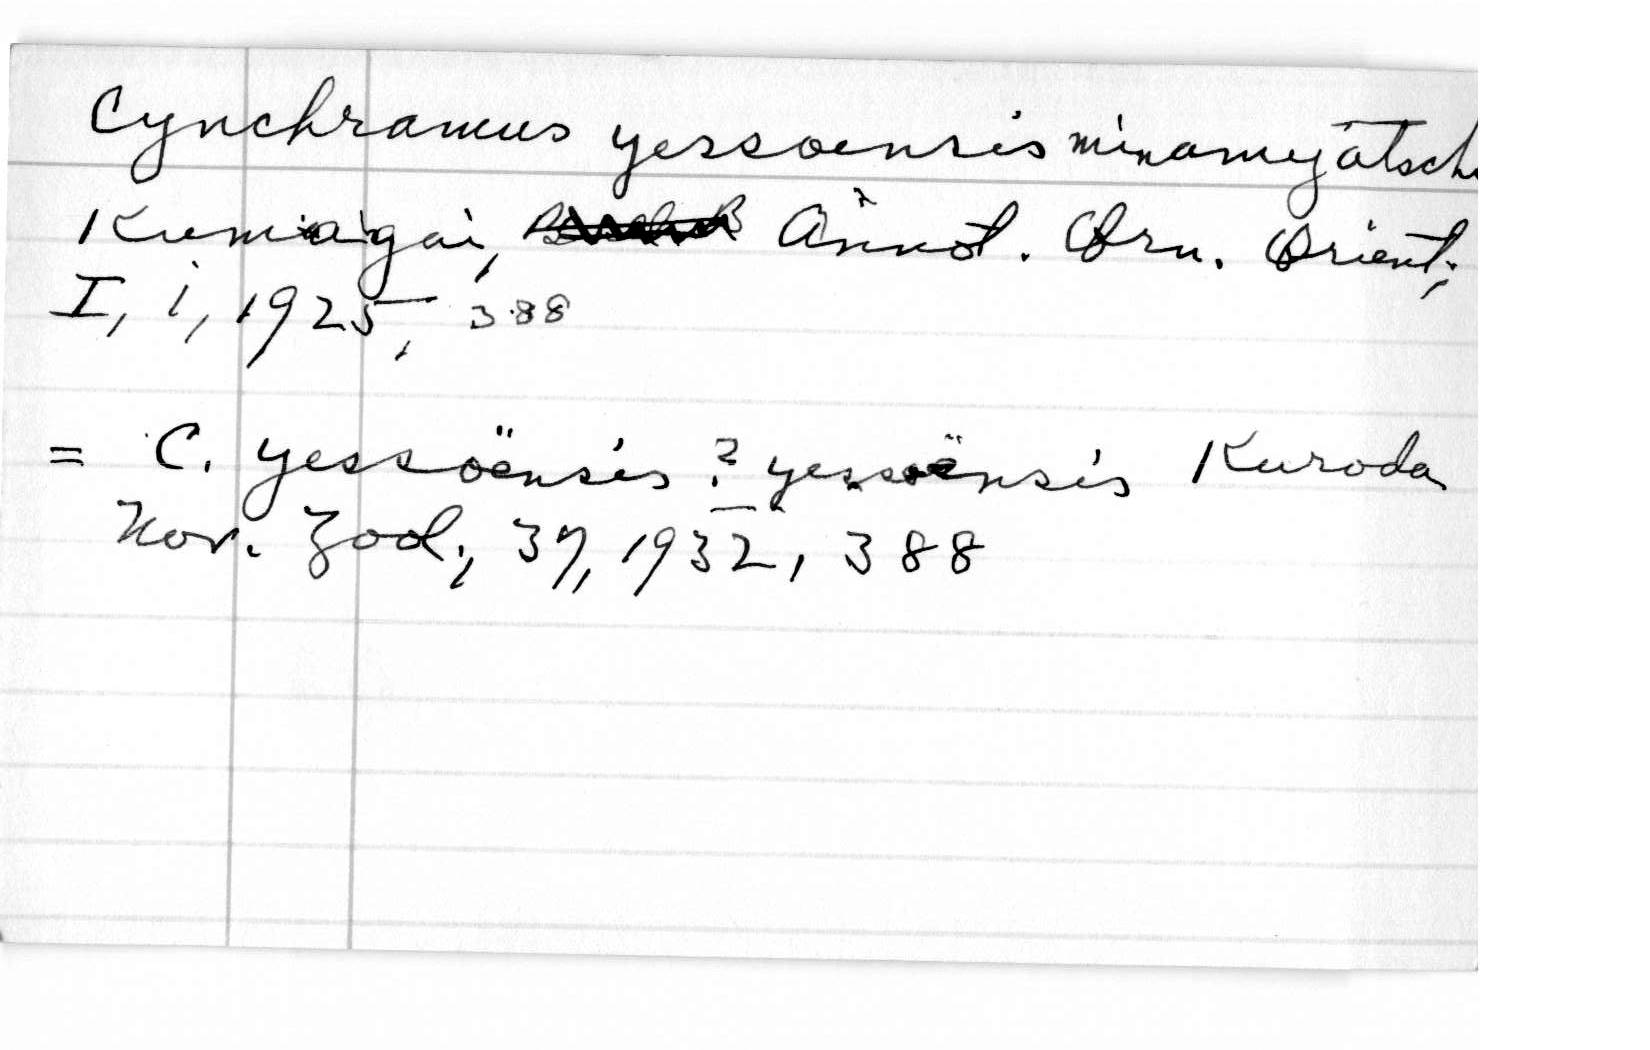 Cynchramus yessoensis minamyatsch
Kumagai, Annot. Orn. Orient;
I, i, 1925, 388
= C. yessöensis ? yessöensis Kuroda
Nov. Zool; 37, 1932, 388